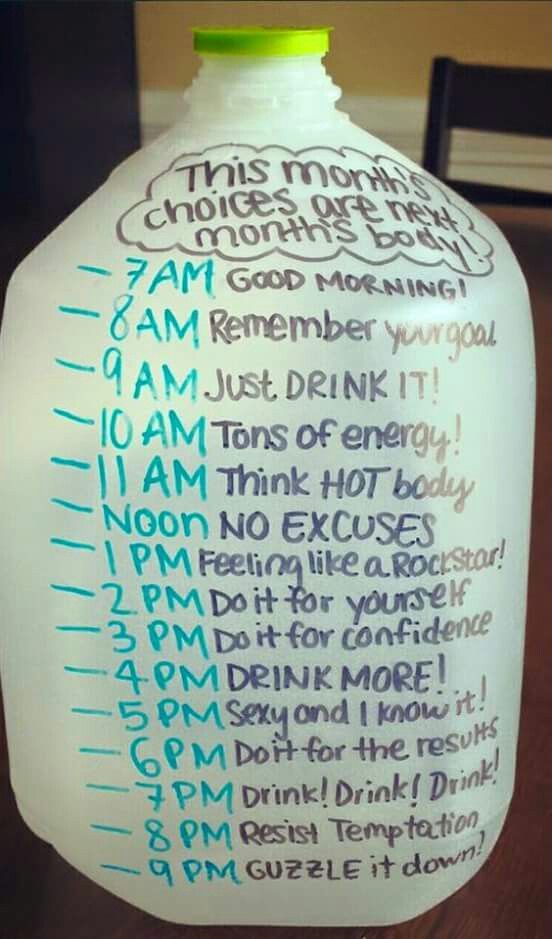 This month's
choices are next
month's body!
- 7AM GOOD MORNING!
- 8AM Remember your goal
- 9AM Just DRINK IT!
- 10 AM Tons of energy!
- 11 AM Think HOT body
- Noon NO EXCUSES
- 1 PM Feeling like a ROCKStar!
- 2 PM Do it for yourself
- 3 PM Do it for confidence
- 4 PM DRINK MORE!
- 5 PM Sexy and I know it!
- 6PM Do it for the results
- 7PM Drink! Drink! Drink!
- 8 PM Resist Temptation
- 9 PM GUZZLE it down!